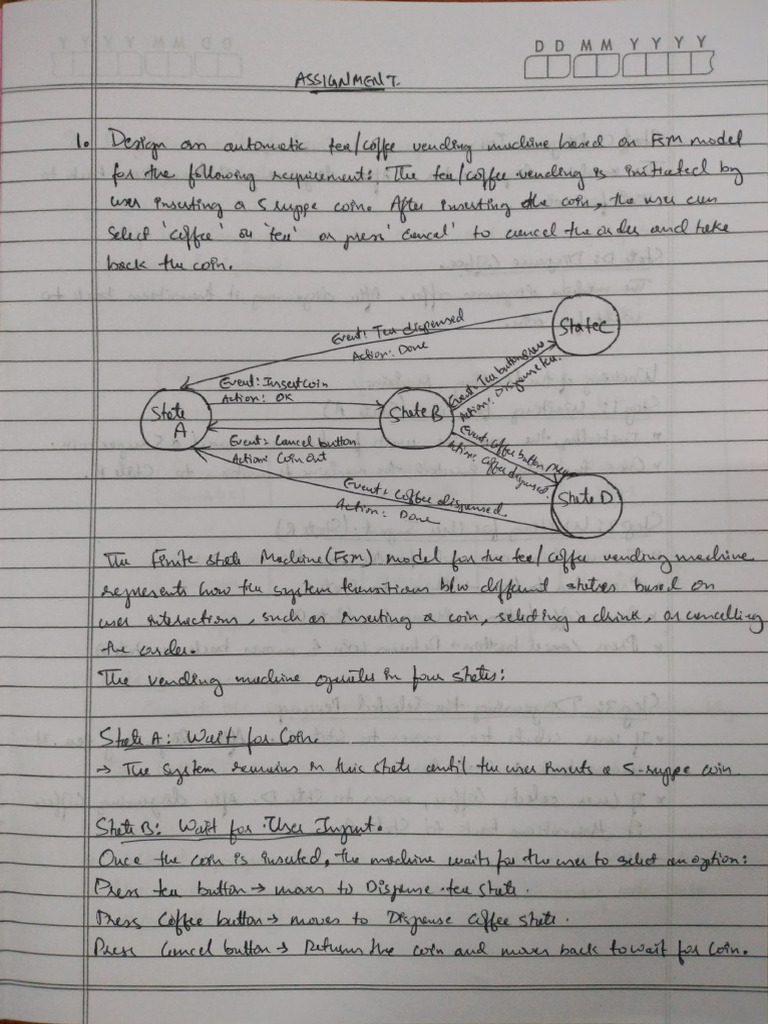 D D M M Y Y Y Y
ASSIGNMENT.
1. Design an automatic tea/coffee vending machine based on FSM model
for the following requirement: The tea/coffee vending is initiated by
user inserting a 5 ruppe coin. After inserting the coin, the user can
select 'coffee' or 'tea' or press 'cancel' to cancel the order and take
back the coin.
State C
Event: Tea dispensed
Action: Done
Event: Tea button
Action: Dispense tea.
Event: Insert coin
Action: OK
State
A
State B
Event: Cancel button
Action: Coin Out
Event: Coffee button press
Action: Coffee dispensed.
Event: Coffee dispensed.
Action: Done
State D
The Finite State Machine (FSM) model for the tea/coffee vending machine
represents how the system transitions b/w different states based on
user interactions, such as inserting a coin, selecting a drink, or cancelling
the order.
The vending machine operates in four states:
State A: Wait for Coin.
→ The system remains in this state until the user inserts a 5-ruppe coin
State B: Wait for User Input.
Once the coin is inserted, the machine waits for the user to select an option:
Press tea button → moves to Dispense tea state.
Press Coffee button → moves to Dispense coffee state.
Press Cancel button → Returns the coin and moves back to wait for coin.